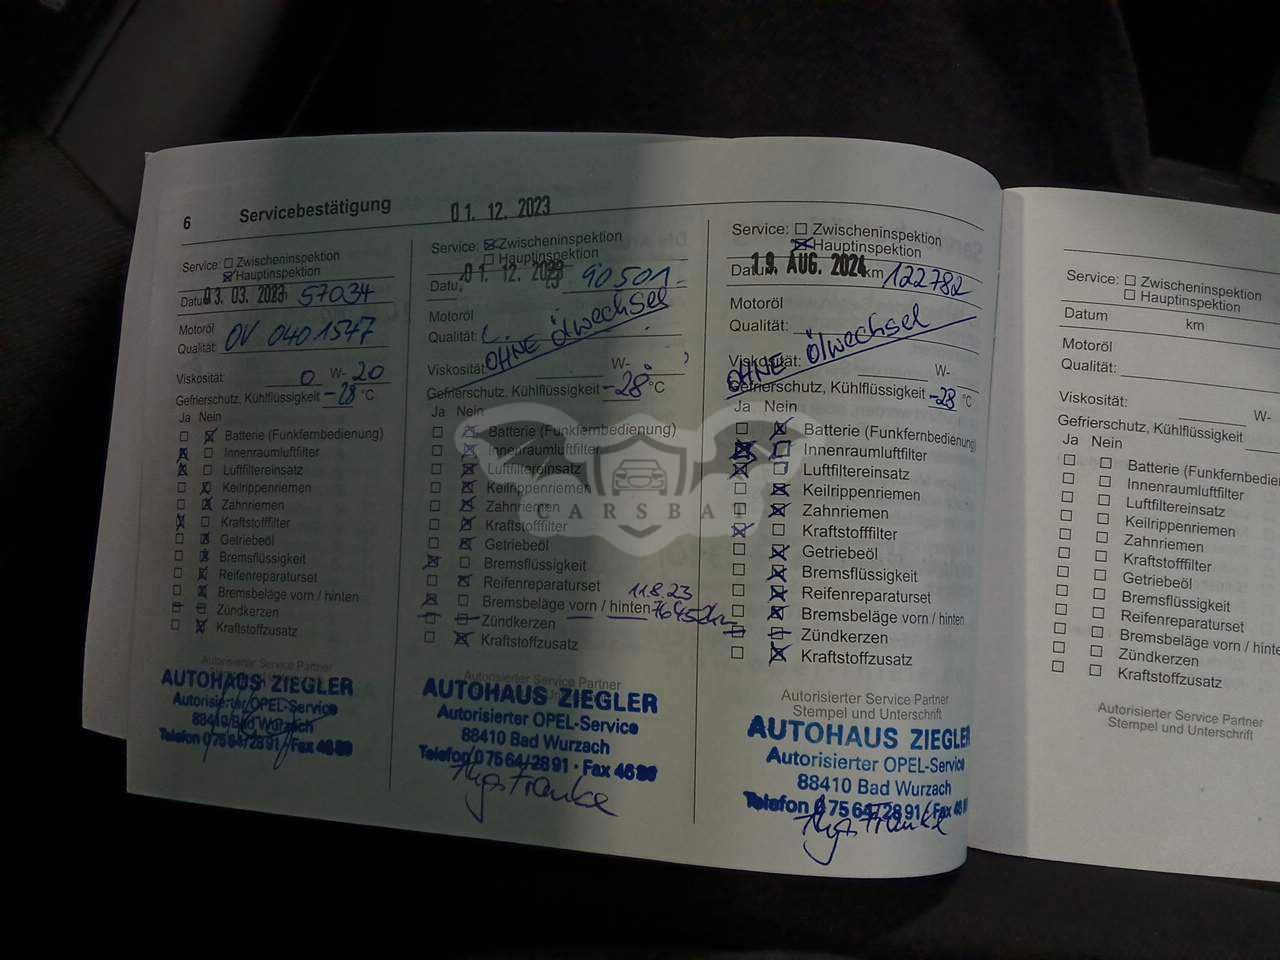 6 Servicebestätigung
Service: Zwischeninspektion
Hauptinspektion
Datum 03. 03. 2023 57034
Motoröl
Qualität: OV 0401547
Viskosität: 0 W- 20
Gefrierschutz, Kühlflüssigkeit -28 °C
Ja Nein
Batterie (Funkfernbedienung)
Innenraumluftfilter
Luftfiltereinsatz
Keilrippenriemen
Zahnriemen
Kraftstofffilter
Getriebeöl
Bremsflüssigkeit
Reifenreparaturset
Bremsbeläge vorn / hinten
Zündkerzen
Kraftstoffzusatz
Autorisierter Service Partner
AUTOHAUS ZIEGLER
Autorisierter OPEL-Service
88410 Bad Wurzach
Telefon 07564/2891 · Fax 4689
01. 12. 2023
Service: Zwischeninspektion
Hauptinspektion
Datum 01. 12. 2023 90501.-
Motoröl
Qualität:
OHNE Ölwechsel
Viskosität: W-
Gefrierschutz, Kühlflüssigkeit -28 °C
Ja Nein
Batterie (Funkfernbedienung)
Innenraumluftfilter
Luftfiltereinsatz
Keilrippenriemen
Zahnriemen
Kraftstofffilter
Getriebeöl
Bremsflüssigkeit
Reifenreparaturset 11.8.23
Bremsbeläge vorn / hinten 76452km
Zündkerzen
Kraftstoffzusatz
Autorisierter Service Partner
AUTOHAUS ZIEGLER
Autorisierter OPEL-Service
88410 Bad Wurzach
Telefon 07564/2891 · Fax 4689
Franke
Service: Zwischeninspektion
Hauptinspektion
Datum 19. AUG. 2024 km 122782
Motoröl
Qualität:
OHNE Ölwechsel
Viskosität: W-
Gefrierschutz, Kühlflüssigkeit -28 °C
Ja Nein
Batterie (Funkfernbedienung)
Innenraumluftfilter
Luftfiltereinsatz
Keilrippenriemen
Zahnriemen
Kraftstofffilter
Getriebeöl
Bremsflüssigkeit
Reifenreparaturset
Bremsbeläge vorn / hinten
Zündkerzen
Kraftstoffzusatz
Autorisierter Service Partner
Stempel und Unterschrift
AUTOHAUS ZIEGLER
Autorisierter OPEL-Service
88410 Bad Wurzach
Telefon 07564/2891 · Fax 46
Franke
Service: Zwischeninspektion
Hauptinspektion
Datum km
Motoröl
Qualität:
Viskosität: W-
Gefrierschutz, Kühlflüssigkeit
Ja Nein
Batterie (Funkfernbedie
Innenraumluftfilter
Luftfiltereinsatz
Keilrippenriemen
Zahnriemen
Kraftstofffilter
Getriebeöl
Bremsflüssigkeit
Reifenreparaturset
Bremsbeläge vorn / hinte
Zündkerzen
Kraftstoffzusatz
Autorisierter Service Partner
Stempel und Unterschrift
CARSBA